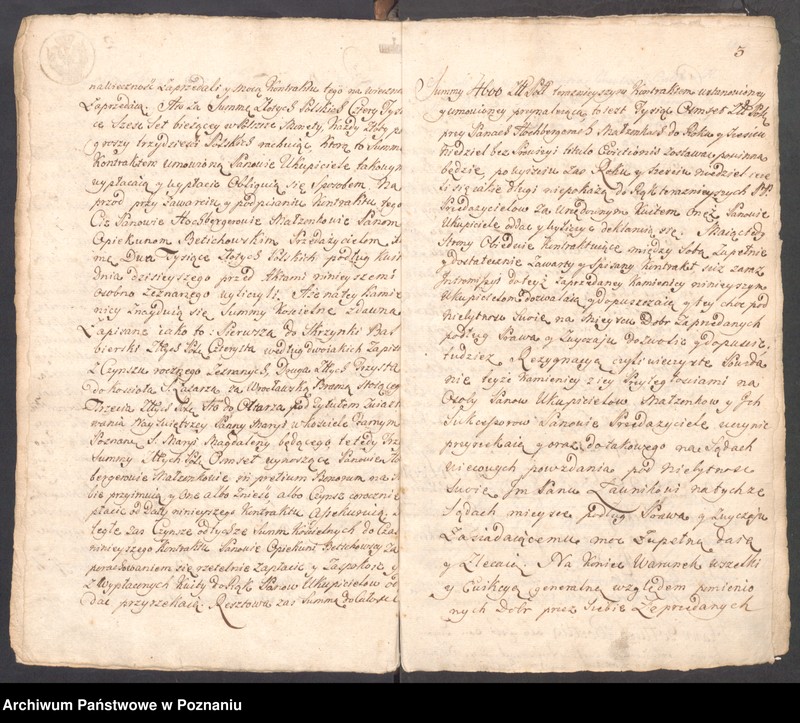 na wieczność zaprzedali y mocą Kontraktu tego na wieczną
Zaprzedaią. A to za Summę Złotych Polskich Cztery Tysią
ce Szesc Set bieżącey w Polszcze Monety, każdy Złoty po
groszy trzydziesci Polskich rachuiąc, ktorą to Summę
Kontraktem umowioną Panowie Ukupiciele takowym
wypłacaią y wypłacic Obliguią się sposobem. Na
przod przy zawarciu y podpisaniu Kontraktu tego
Ciż Panowie Hochbergerowie Małżonkowie Panom
Opiekunom Betichowskim Przedażycielom
mę Dwa Tysiące Złotych Polskich podług kwitu
dnia dzisieyszego przed Aktami ninieyszemi
osobno zeznanego wyliczyli. A że na tey Kamie
nicy znayduią się Summy Kościelne zdawna
Zapisane iako to: Pierwsza do Skrzynki Bal
bierski Złtych Pols: Czterysta według dwoiakich Zapisow
z Czynszu rocznego zebranych, Druga Złtych Trzysta
do kościoła S. Łazarza za Wrocławską Bramą stoiącego
Trzecia Złtych Pols: Sto do Ołtarza pod tytułem Zwiasto
wania Nayświętrzey Panny Maryi w kosciele Farnym
Poznań: S. Maryi Magdaleny będącego, te tedy Trzy
Summy Złtych Pols: Osmset wynoszące Panowie Ho
bergerowie Małżonkowie in pretium Bonorum na
Się przyimuią y One albo znieść albo Czynsz corocznie
płacic od Daty ninieyszego Kontraktu Assekuruią.
ległe zas Czynsze od tychże Summ Kościelnych do Czasu
ninieyszego Kontraktu Panowie Opiekuni Betichowscy za
porachowaniem się rzetelnie zapłacic y zaspokoic y
z wypłaconych kwity do Rąk Panow Ukupicielow od
dac przyrzekaią. Resztowa zas Summa do całości
3
Summy 4600 Złt Pols teraznieyszym Kontraktem ustanowioney
y umowioney przynależąca to iest Tysiąc Osmset Złt Pols
przy Panach Hochbergerach Małżonkach do Roku y Szesciu
Niedziel bez Prowizyi titulo Evictionis zostawac powinna
będzie, po wysciu zas Roku y Szesciu niedziel iezę
li się iakie długi niepokażą do Rąk teraznieyszych PP.
Przedażycielow za Urzędownym Kwitem Onęż Panowie
Ukupiciele oddac y wyliczyc deklaruią się. Maiąc tedy
Strony Obiedwie Kontraktuiące między Sobą Zupełnie
y dostatecznie Zawarty y Spisany Kontrakt iuż zaraz
Intromissyi do teyż Zaprzedaney Kamienicy ninieyszym
Ukupicielom dozwalaią y dopuszczaią y teyże pod
Nielytnosc Swoię na mieyscu Dobr Zaprzedanych
podług Prawa y Zwyczaiu dozwolic y dopuscic
tudziesz Rezygnacyą czyli wieczyste Powzda
nie teyże Kamienicy z iey Przyległosciami na
Osoby Panow Ukupicielow Małżonkow y Ich
Sukcessorow Panowie Przedażyciele uczynic
przyrzekaią y oraz do takowego na Sądach
wiecowych powzdania pod Nielytnosc
Swoię Jm Panu Ławnikowi na tychże
Sądach mieysce podług Prawa y Zwyczaiu
Zasiadaiącemu moc Zupełną daią
y Zlecaią. Na Koniec Warunek wszelki
y Ewikcyą generalną względem pomienio
nych Dobr przez Siebie Zaprzedanych
Archiwum Państwowe w Poznaniu